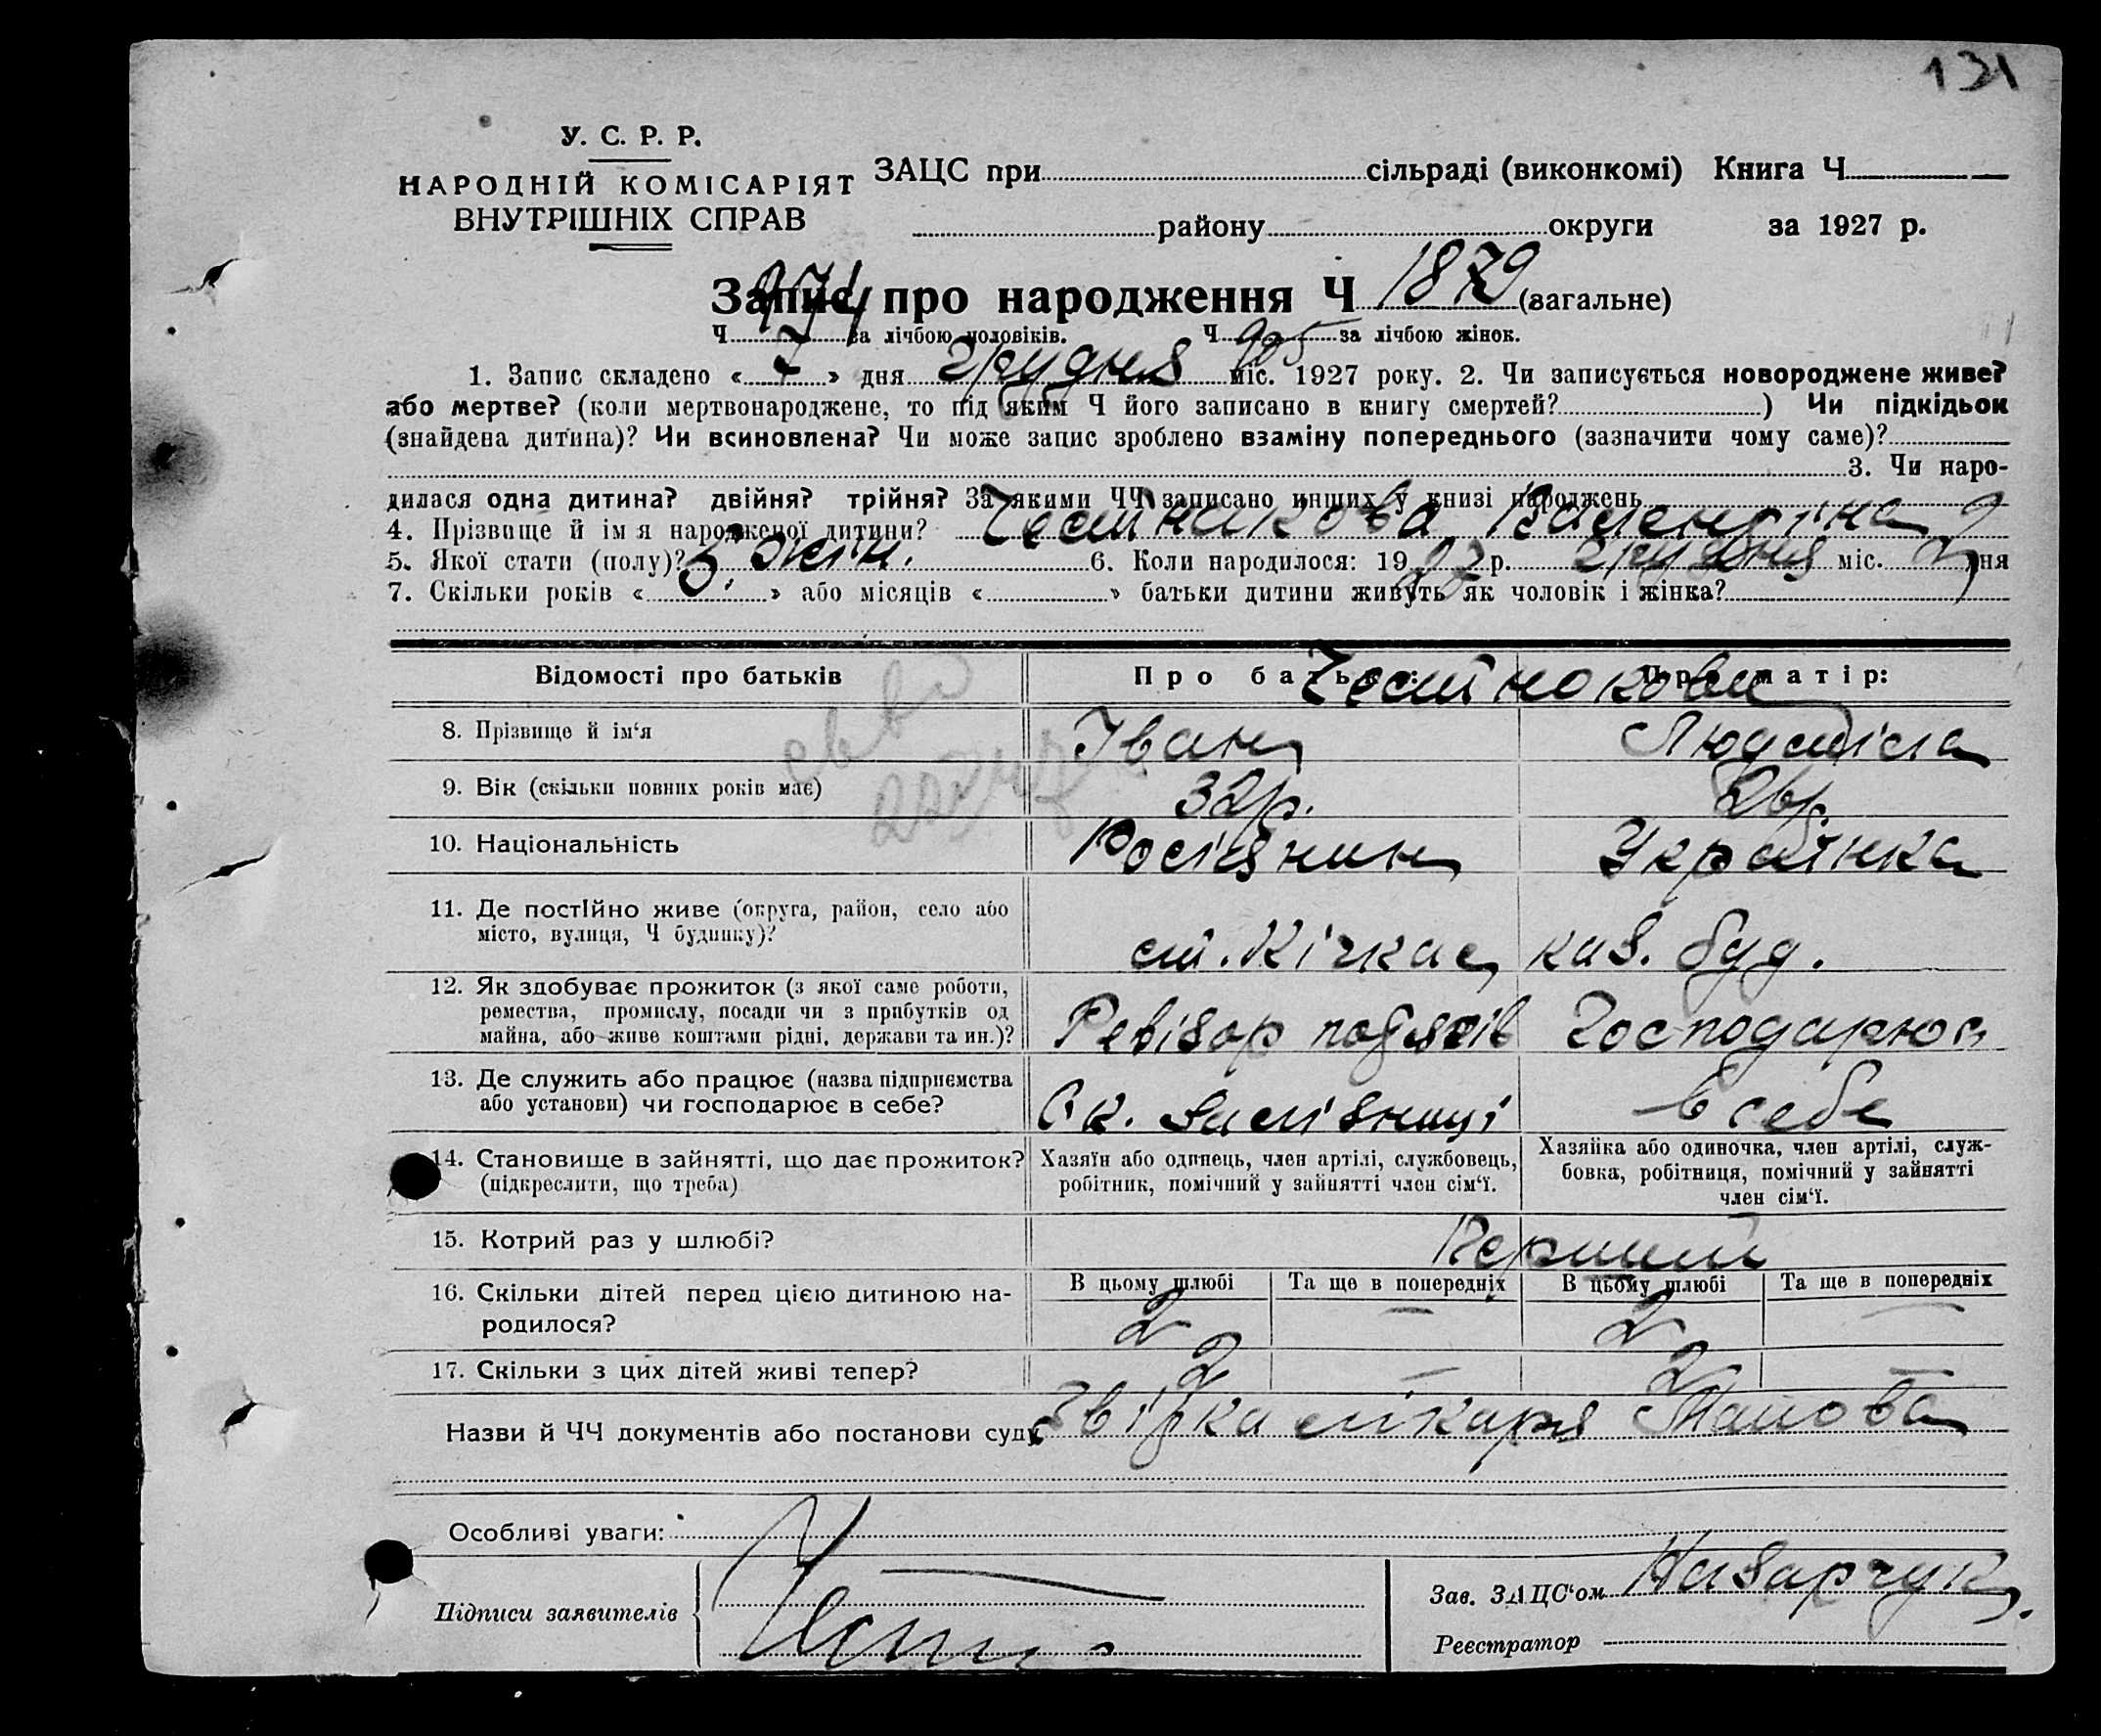 131
У. С. Р. Р.
НАРОДНІЙ КОМІСАРІЯТ
ВНУТРІШНІХ СПРАВ
ЗАЦС при сільраді (виконкомі) Книга Ч
району округи за 1927 р.
Запис про народження Ч 1879 (загальне)
Ч 974 за лічбою чоловіків. Ч 905 за лічбою жінок.
1. Запис складено « 7 » дня грудня міс. 1927 року. 2. Чи записується новороджене живе?
або мертве? (коли мертвонароджене, то під яким Ч його записано в книгу смертей? ) Чи підкідьок
(знайдена дитина)? Чи всиновлена? Чи може запис зроблено взаміну попереднього (зазначити чому саме)?
3. Чи наро-
дилася одна дитина? двійня? трійня? За якими ЧЧ записано инших у книзі народжень
4. Прізвище й ім я народженої дитини? Чеснакова Валентіна
5. Якої стати (полу)? жін. 6. Коли народилося: 1927 р. грудня міс. 2 дня
7. Скільки років « 5 » або місяців « » батьки дитини живуть як чоловік і жінка?
Відомості про батьків
Про батька: Про матір:
Чеснокови
8. Прізвище й ім‘я
Іван Людміла
9. Вік (скільки повних років має)
32р. 26р.
10. Національність
Росіянин Українка
11. Де постійно живе (округа, район, село або
місто, вулиця, Ч будинку)?
ст. Кічкас, каз. буд.
12. Як здобуває прожиток (з якої саме роботи,
ремества, промислу, посади чи з прибутків од
майна, або живе коштами рідні, держави та ин.)?
Ревізор потягів Господарює
13. Де служить або працює (назва підприємства
або установи) чи господарює в себе?
Ск. Залізниці в себе
14. Становище в зайнятті, що дає прожиток?
(підкреслити, що треба)
Хазяїн або одинець, член артілі, службовець,
робітник, помічний у зайнятті член сім‘ї.
Хазяйка або одиночка, член артілі, служ-
бовка, робітниця, помічний у зайнятті
член сім‘ї.
15. Котрий раз у шлюбі?
Перший
16. Скільки дітей перед цією дитиною на-
родилося?
В цьому шлюбі Та ще в попередніх В цьому шлюбі Та ще в попередніх
2 — 2 —
17. Скільки з цих дітей живі тепер?
2 — 2 —
Назви й ЧЧ документів або постанови суду Звідка лікаря
Особливі уваги:
Підписи заявителів
Зав. ЗАЦС‘ом Назарчук.
Реєстратор